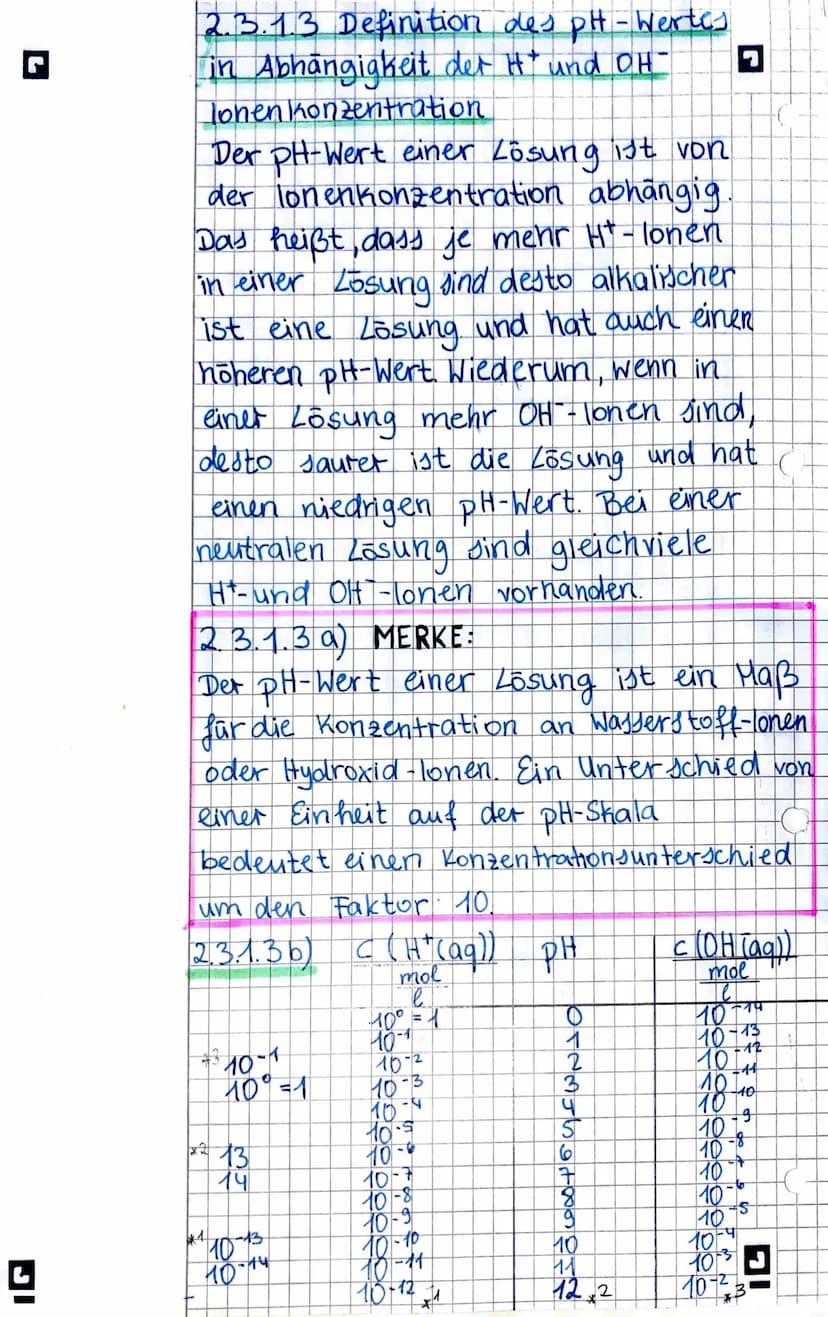 2.3.1.3 Definition des pH-Wertes
in Abhängigkeit der H⁺ und OH⁻
Ionenkonzentration
Der pH-Wert einer Lösung ist von
der Ionenkonzentration abhängig.
Das heißt, dass je mehr H⁺-Ionen
in einer Lösung sind desto alkalischer
ist eine Lösung und hat auch einen
höheren pH-Wert. Wiederum, wenn in
einer Lösung mehr OH⁻-Ionen sind,
desto saurer ist die Lösung und hat
einen niedrigen pH-Wert. Bei einer
neutralen Lösung sind gleichviele
H⁺-und OH⁻-Ionen vorhanden.
2.3.1.3 a) MERKE:
Der pH-Wert einer Lösung ist ein Maß
für die Konzentration an Wasserstoff-Ionen
oder Hydroxid-Ionen. Ein Unterschied von
einer Einheit auf der pH-Skala
bedeutet einen Konzentrationsunterschied
um den Faktor 10.
2.3.1.3 b) c (H⁺(aq)) pH c (OH⁻(aq))
mol mol
l l
10⁰ = 1 0 10⁻¹⁴
10⁻¹ 1 10⁻¹³
10⁻² 2 10⁻¹²
10⁻³ 3 10⁻¹¹
10⁻⁴ 4 10⁻¹⁰
10⁻⁵ 5 10⁻⁹
10⁻⁶ 6 10⁻⁸
10⁻⁷ 7 10⁻⁷
10⁻⁸ 8 10⁻⁶
10⁻⁹ 9 10⁻⁵
10⁻¹⁰ 10 10⁻⁴
10⁻¹¹ 11 10⁻³
10⁻¹² *1 12 *2 10⁻² *3
*3 10⁻¹
10⁰ = 1
*2 13
14
*1 10⁻¹³
10⁻¹⁴